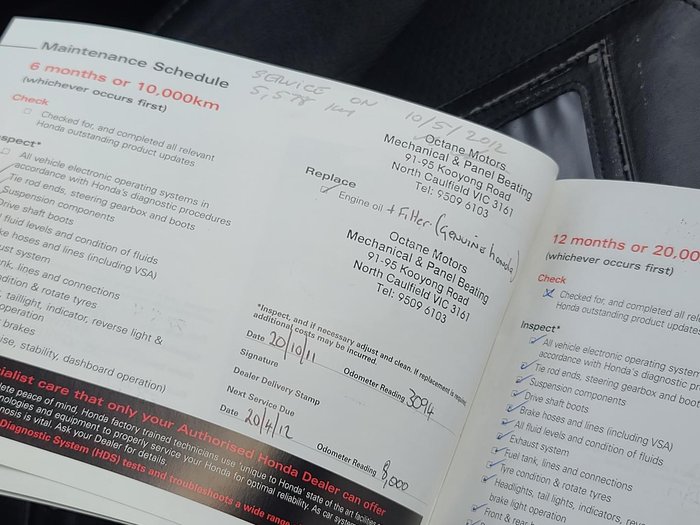 Maintenance Schedule
6 months or 10,000km
(whichever occurs first)
SERVICE ON 10/5/2012
5,578 KM
Check
Checked for, and completed all relevant
Honda outstanding product updates
nspect*
All vehicle electronic operating systems in
accordance with Honda's diagnostic procedures
Tie rod ends, steering gearbox and boots
Suspension components
Drive shaft boots
fluid levels and condition of fluids
ke hoses and lines (including VSA)
aust system
nk, lines and connections
ndition & rotate tyres
, taillight, indicator, reverse light &
operation
brakes
use, stability, dashboard operation)
Octane Motors
Mechanical & Panel Beating
91-95 Kooyong Road
North Caulfield VIC 3161
Tel: 9509 6103
Replace
Engine oil + Filter (Genuine honda)
Octane Motors
Mechanical & Panel Beating
91-95 Kooyong Road
North Caulfield VIC 3161
Tel: 9509 6103
*Inspect, and if necessary adjust and clean. If replacement is required
additional costs may be incurred.
Date 20/10/11
Odometer Reading 3094
Signature
Dealer Delivery Stamp
Next Service Due
Date 20/4/12
Odometer Reading 8,000
ialist care that only your Authorised Honda Dealer can offer
lete peace of mind, Honda factory trained technicians use 'unique to Honda' state of the art facilities
nologies and equipment to properly service your Honda for optimal reliability. As car system
nosis is vital. Ask your Dealer for details.
Diagnostic System (HDS) tests and troubleshoots a wide range
12 months or 20,00
(whichever occurs first)
Check
Checked for, and completed all rele
Honda outstanding product updates
Inspect*
All vehicle electronic operating system
accordance with Honda's diagnostic p
Tie rod ends, steering gearbox and boot
Suspension components
Drive shaft boots
Brake hoses and lines (including VSA)
All fluid levels and condition of fluids
Exhaust system
Fuel tank, lines and connections
Tyre condition & rotate tyres
Headlights, tail lights, indicators, reve
brake light operation
Front & rear b